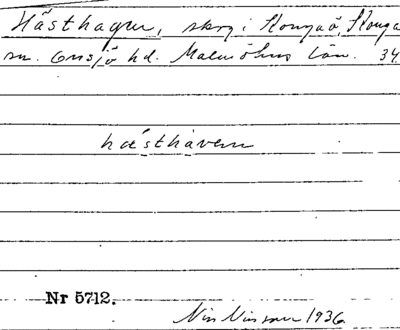 Hästhagen, skog i Hougaö, Houga
sn. Onsjö hd. Malmöhus län. 34
hásthaven
Nr 5712.
Nils Nilsson 1936